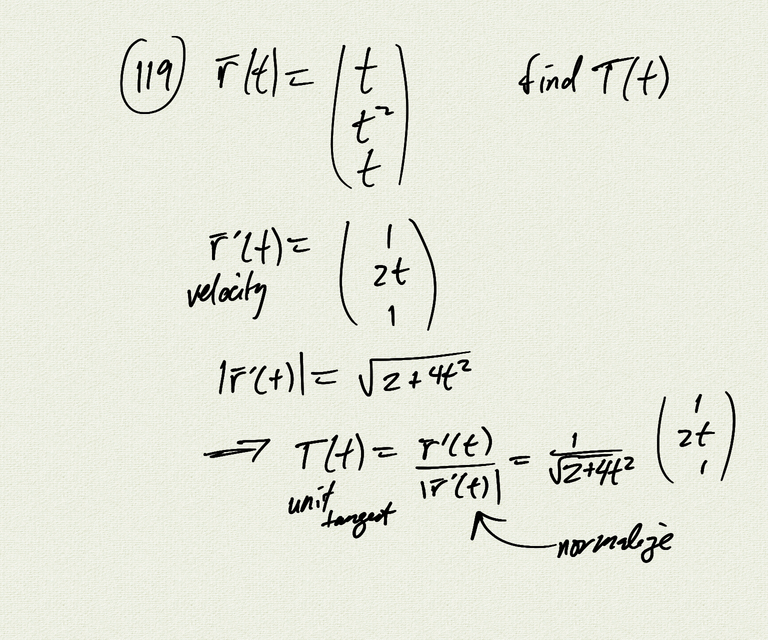 (119) r̄(t) = (t
t²
t) find T(t)
r̄'(t) = (1
2t
1)
velocity
|r̄'(t)| = √2+4t²
⟹ T(t) = r'(t)/|r̄'(t)| = 1/√2+4t² (1
2t
1)
unit
tangent
normalize